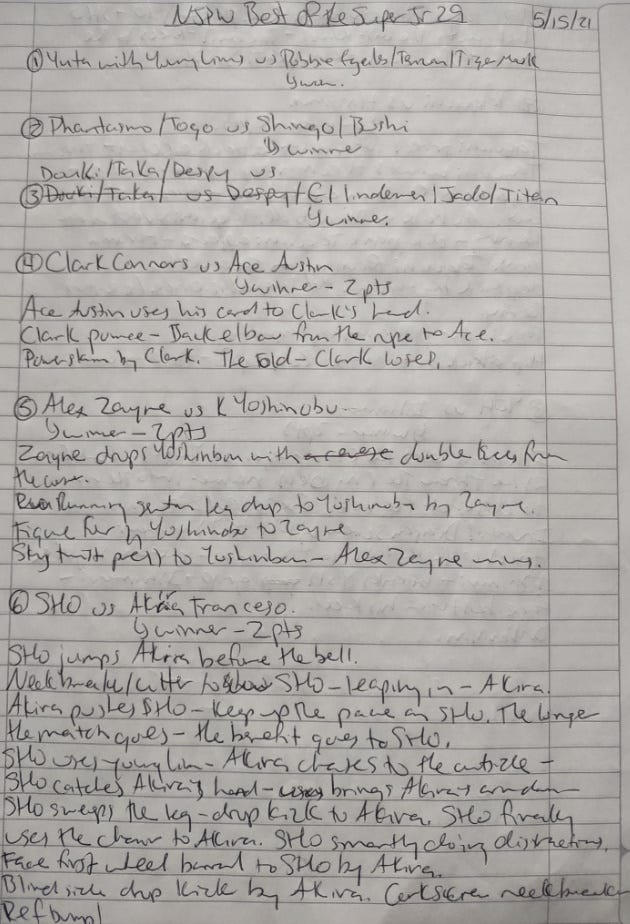 NJPW Best of the Super Jr 29 5/15/21
① Yuta with Young Lions vs Robbie Eagles/ /Tiger Mask
↳ win.
② Phantasmo/Togo vs Shingo/Bushi
↳ winner
Douki/Taka/Despy vs
③ Douki/Taka/ vs Despy/El Lindaman/Jado/Titan
↳ winner.
④ Clark Connors vs Ace Austin
↳ winner - 2 pts
Ace Austin uses his card to Clark's hand.
Clark pounce - Back elbow from the rope to Ace.
Powerslam by Clark. The Fold - Clark loses.
⑤ Alex Zayne vs K Yoshinobu
↳ winner - 2 pts
Zayne drops Yoshinbou with a reverse double knees from
the corner.
Running senton leg drop to Yoshinobu by Zayne.
Figure four by Yoshinobu to Zayne
Sky twist press to Yoshinbou - Alex Zayne wins.
⑥ SHO vs Akira Franceso.
↳ winner - 2 pts
SHO jumps Akira before the bell.
Neckbreaker/cutter to SHO - leaping in - Akira.
Akira pushes SHO - keep up the pace on SHO. The longer
the match goes - the benefit goes to SHO.
SHO uses young lion - Akira chases to the outside -
SHO catches Akira's hand - brings Akira's arm down
SHO sweeps the leg - drop kick to Akira. SHO finally
uses the chair to Akira. SHO smartly doing distractions.
Face first wheel barrel to SHO by Akira.
Blind side drop kick by Akira. Corkscrew neckbreaker
Ref bump!